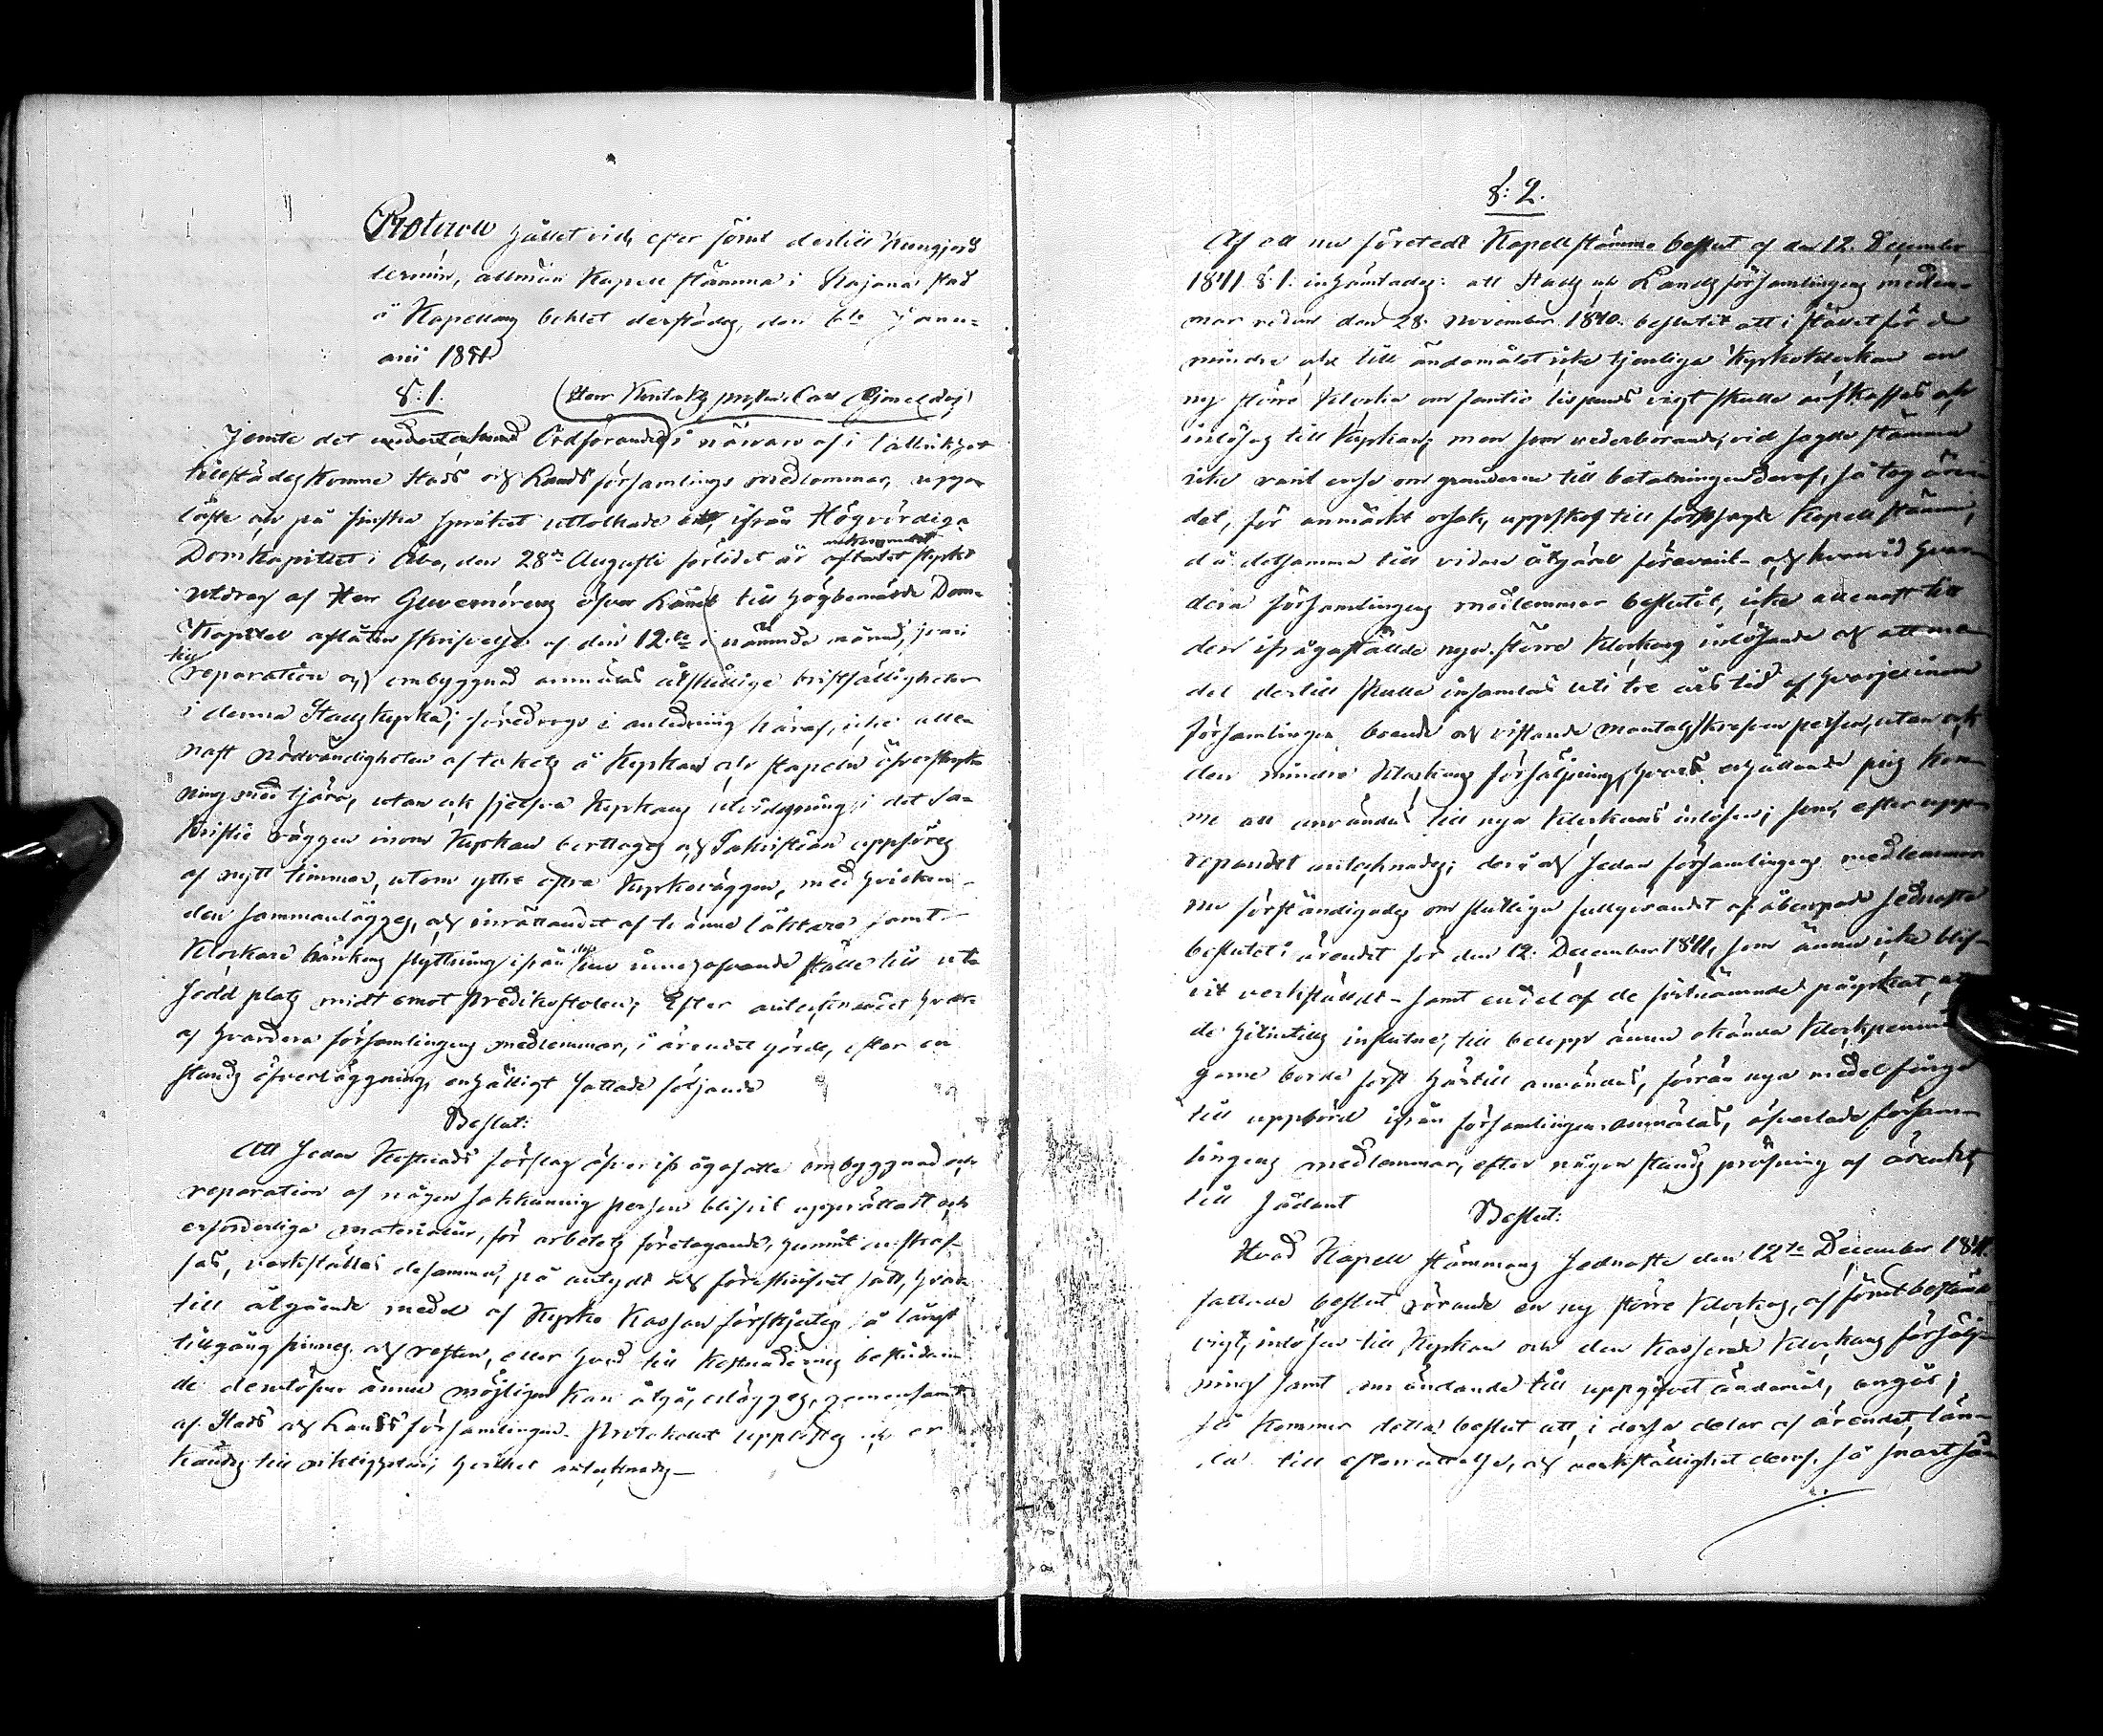 Protocoll hållet vid, efter förut dertill kungjord
termin, allmän Kapell stämma i Kajana stad
å Kapellans bohlet derstädes, den 6te Janu-
arii 1851.
§: 1.
Jemte det undertecknad Ordförande i närvaro af i talrikhet
tillstädes komne Stads och Lands församlings medlemmar, upp-
läste och på finska språket uttolkade ett, ifrån Högvördiga
Domkapitlet i Åbo, den 28de Augusti förlidet år
utdrag af Herr Guvernörens öfver Länet till högbemälde Dom-
Kapitel aflåtna skrifvelse af den 12te i nämnde månad,
till
reparation och ombyggnad anmälas åtskillige bristfälligheter
i denna Stads kyrka; föredrogs i anledning häraf, icke alle-
nast nödvändigheten af takets å Kyrkan och stapeln öfverstryk-
ning med tjära, utan ock sjelfva Kyrkans utvidgning i det Sa-
kristie väggen inom Kyrkan borttages och Sakristian uppföres
af nytt timmer, utom yttre östra kyrkoväggen, med hvilken
den sammanlägges, och inrättandet af tvänne läktare samt
Klockare bänkens flyttning ifrån dess nu innehafvande ställe till ut-
sedd plats midt emot Predikostolen; Efter antecknandet hvar-
af hvardera församlingens medlemmar, i ärendet hörde, efter en
stunds öfverläggning, enhälligt fattade följande
Beslut:
Att sedan Kostnads förslag öfver ifrågasatte ombyggnad och
reparation af någon sakkunnig person blifvit upprättadt och
erforderliga materialier, för arbetets företagande, hunnit anskaf-
fas, verkställes desamma, på antydt och föreskrifvet sätt, hvar-
till åtgående medel af Kyrko Kassan förskjutes, så långt
tillgång finnes och resten, eller hvad till kostnadernes bestridan-
de derutöfver ännu möjligen kan åtgå, erlägges, gemensamt
af Stads och Landsförsamlingen. Protokollet upplästes och er-
kändes till riktigheten; hvilket antecknades—
§: 2.
Af ett nu företedt Kapellstämmo beslut af den 12. December
1841 §. 1. inhämtades: att Stads och Landsförsamlingens medlem-
mar redan den 28. November 1840. beslutit att i stället för de
mindre och till ändamålet icke tjenliga Kyrkoklockan en
ny större klocka om femtio lispunds vigt skulle anskaffas och
inlösas till Kyrkan; men som vederbörande, vid sagde stämma
icke varit ense om grunderne till betalningen deraf, så tog ären-
det, för anmärkt orsak, uppskof till förstsagde Kapellstämma,
då detsamma till vidare åtgärd förevarit — och hvarvid hvar-
dera församlingens medlemmar beslutit, icke allenast till
den ifrågaställde nya större klockans inlösande och att me-
del dertill skulle insamlas uti tre års tid af hvarje inom
församlingen boende och vistande Mantalsskrefven person, utan ock
den mindre klockans försäljning, hvars erhållande pris kom-
me att användas till nya klockans inlösen; som, efter upp-
repandet antecknades; derå och sedan församlingens medlemmar
nu förständigades om slutliga fullgörandet af åberopade sednaste
beslutet i ärendet för den 12. December 1841, som ännu icke blif-
vit verkställdt — samt en del af de förenämnde påyrkat, at
de hitintills influtne, till belopp ännu okända Klockpennin-
garne borde först härtill användas, förrän nya medel finge
till uppbörd ifrån församlingen anmälas, öfverlade försam-
lingens medlemmar, efter någon stunds pröfning af ärendet,
till sådant
Beslut:
Hvad Kapell stämmans sednaste den 12te December 1841
fattade beslut rörande en ny större klockas, af förutbestämd
vigt, inlösen till Kyrkan och den kasserade klockans försälj-
ning samt användande till uppgifvet ändamål, angår;
så kommer detta beslut att, i dessa delar af ärendet, län-
da till efterrättelse, och verkställighet deraf, så snart ske